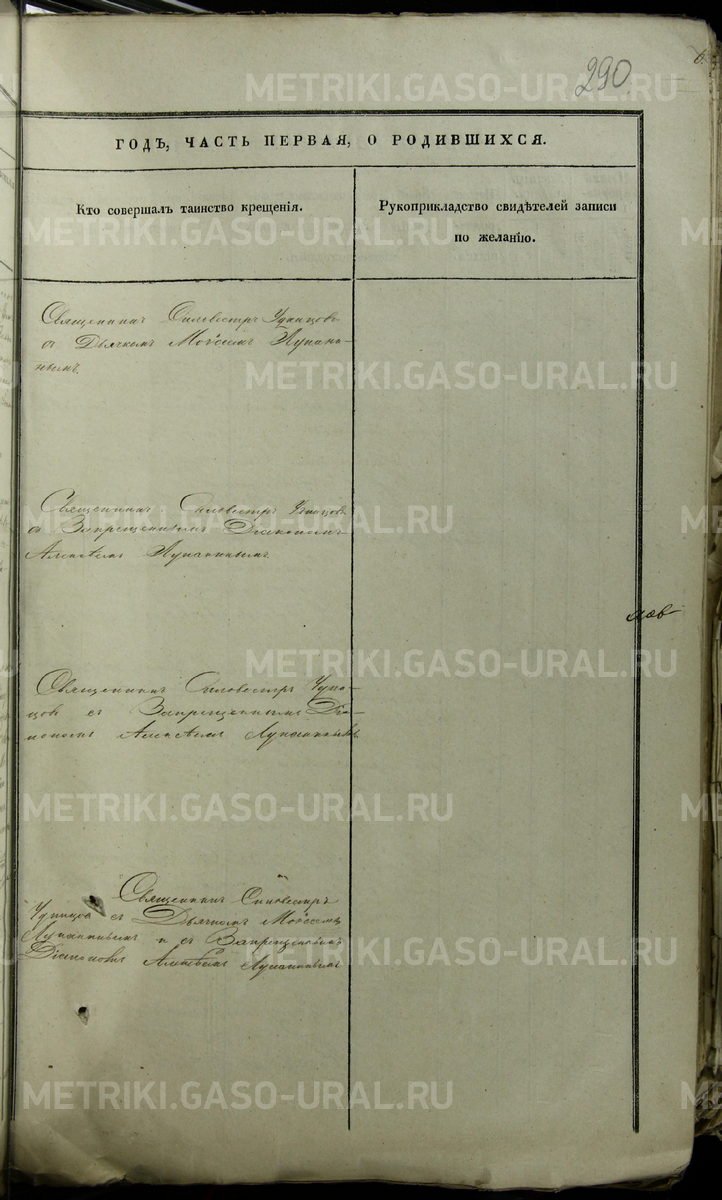 290
ГОДЪ, ЧАСТЬ ПЕРВАЯ, О РОДИВШИХСЯ.
Кто совершалъ таинство крещенія.
Рукоприкладство свидѣтелей записи
по желанію.
Священникъ Силвестръ
съ Дьячкомъ Моѵсеемъ Лупани-
нымъ.
Священникъ Силвестръ
съ Запрещеннымъ Діакономъ
Алексѣемъ Лупанинымъ.
Священникъ Силвестръ
съ Запрещеннымъ Діа-
кономъ Алексѣемъ Лупанинымъ
Священникъ Силвестръ
съ Дьячкомъ Моѵсеемъ
Лупанинымъ и съ Запрещеннымъ
Діакономъ Алексѣемъ Лупанинымъ
METRIKI.GASO-URAL.RU
METRIKI.GASO-URAL.RU
METRIKI.GASO-URAL.RU
METRIKI.GASO-URAL.RU
METRIKI.GASO-URAL.RU
METRIKI.GASO-URAL.RU
METRIKI.GASO-URAL.RU
METRIKI.GASO-URAL.RU